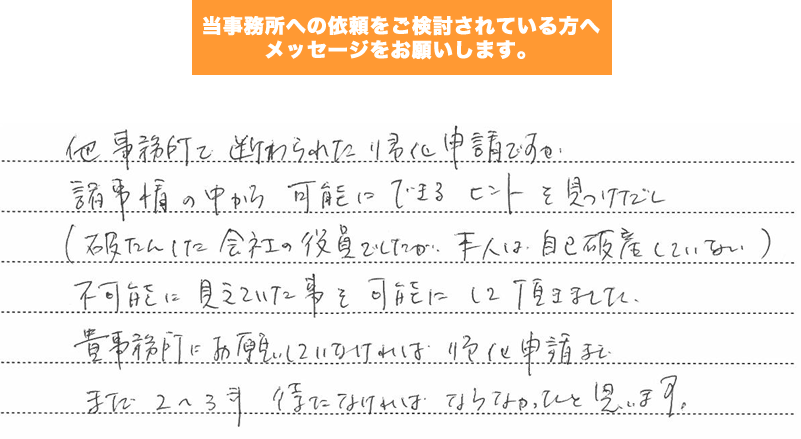 当事務所への依頼をご検討されている方へ
メッセージをお願いします。
他事務所で断わられた帰化申請ですが
諸事情の中から可能にできるヒントを見つけだし
(破たんした会社の役員でしたが、本人は自己破産していない)
不可能に見えていた事を可能にして頂きました。
貴事務所にお願いしていなければ帰化申請まで
まだ2〜3年待たなければならなかったと思います。